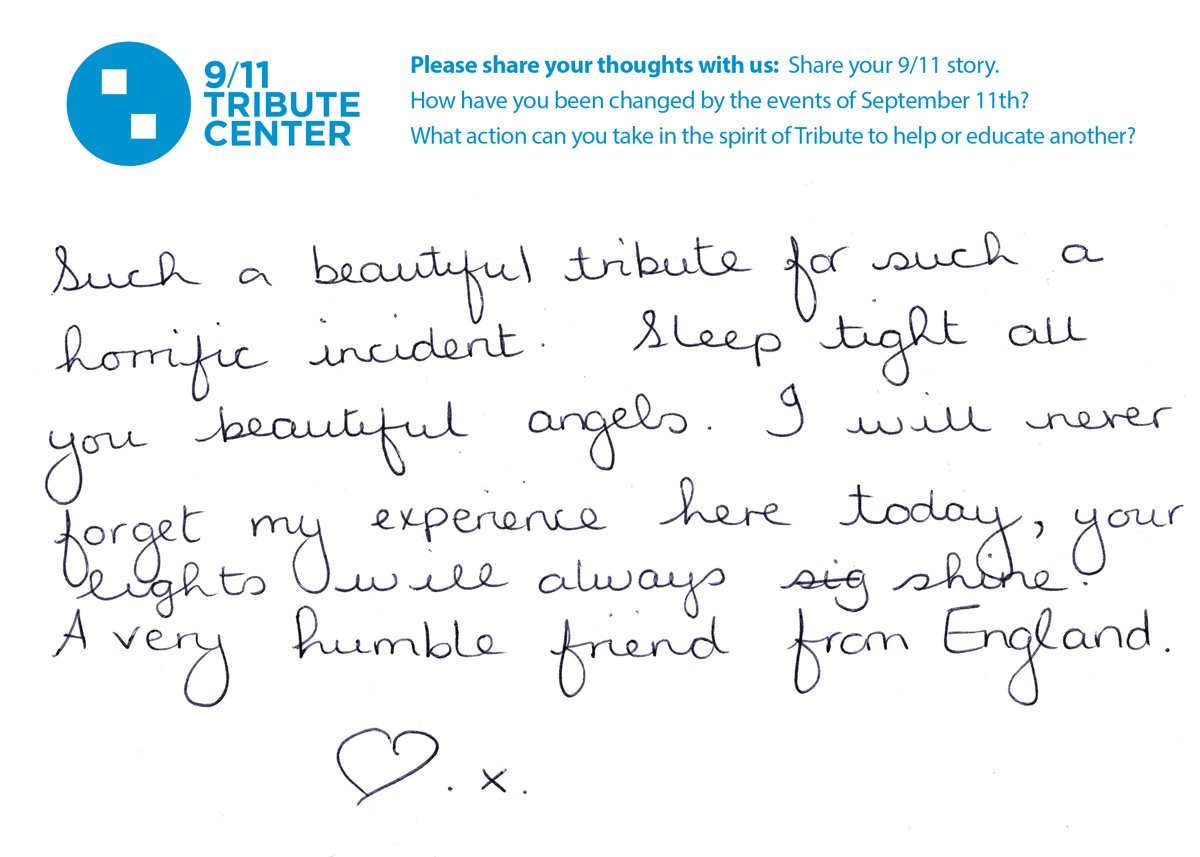 9/11
TRIBUTE
CENTER
Please share your thoughts with us: Share your 9/11 story.
How have you been changed by the events of September 11th?
What action can you take in the spirit of Tribute to help or educate another?
Such a beautiful tribute for such a
horrific incident. Sleep tight all
you beautiful angels. I will never
forget my experience here today, your
lights will always sig shine.
A very humble friend from England.
♡. x.